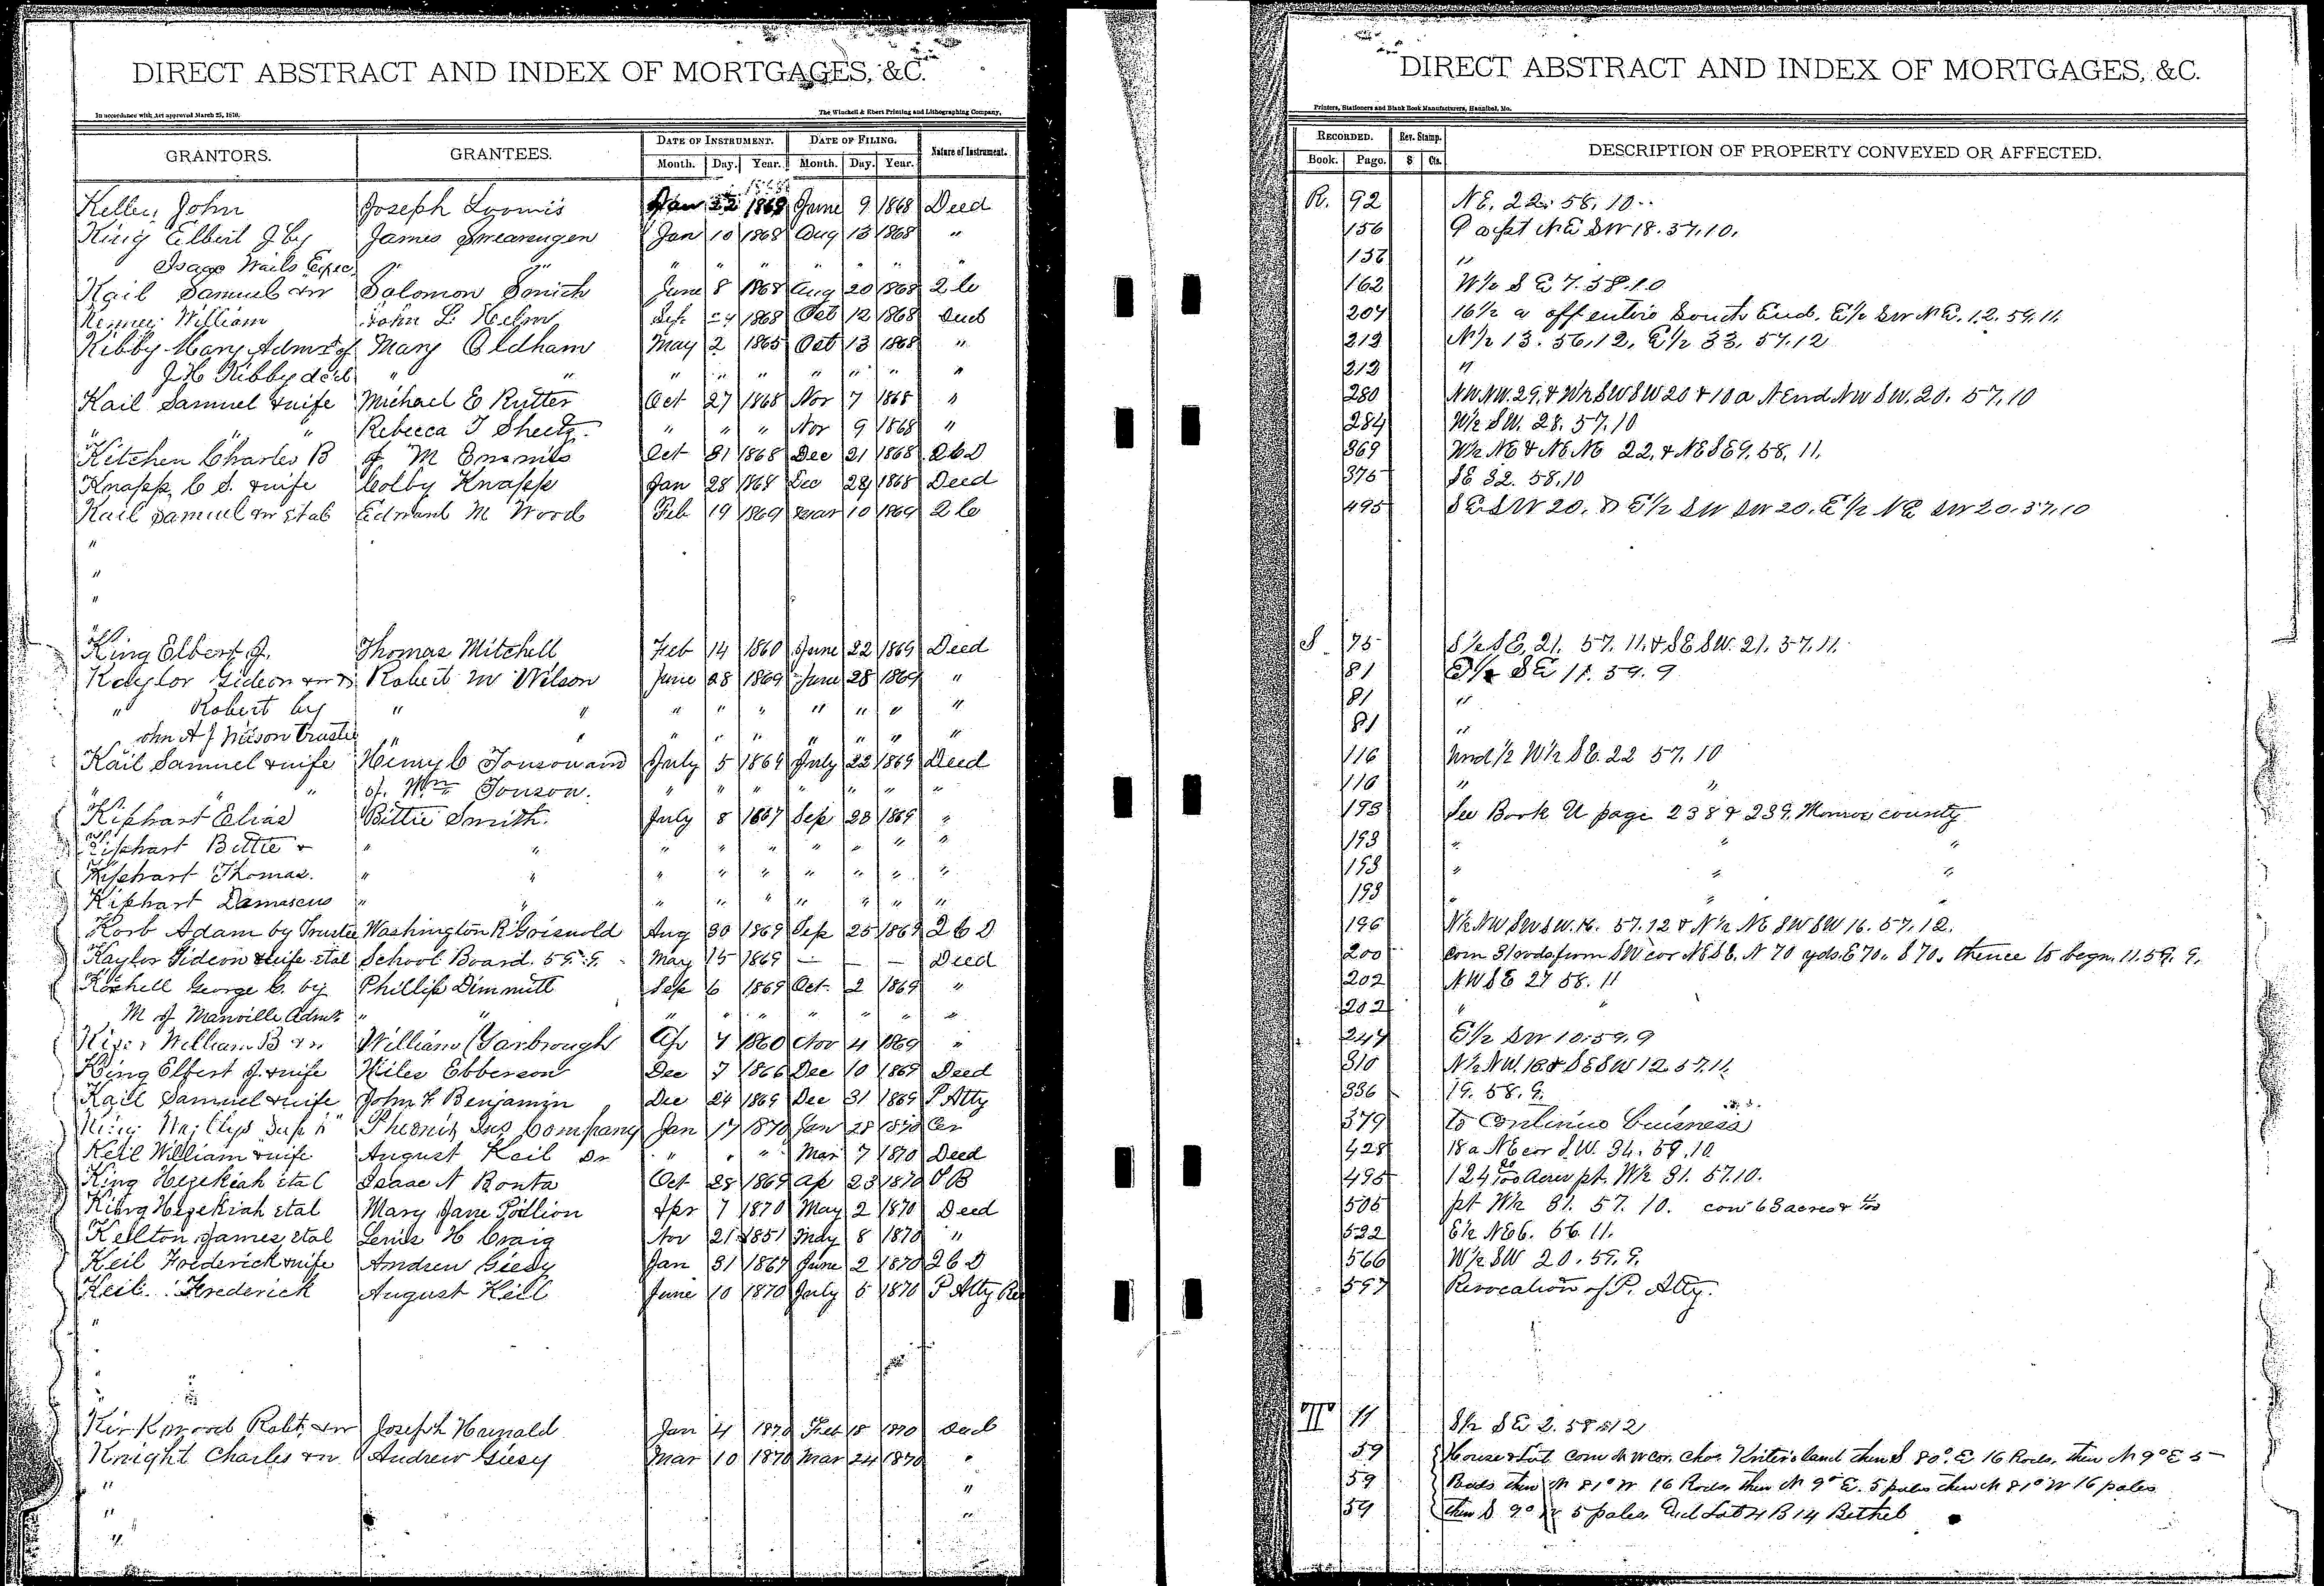 DIRECT ABSTRACT AND INDEX OF MORTGAGES, &C.
In accordance with Act approved March 25, 1870.
The Winchell & Ebert Printing and Lithographing Company,
GRANTORS. GRANTEES. DATE OF INSTRUMENT. DATE OF FILING. Nature of Instrument.
Month. Day. Year. Month. Day. Year.
Keller John Joseph Loomis Jan 22 1868 June 9 1868 Deed
King Elbert J by James Swearengen Jan 10 1868 Aug 13 1868 "
Isaac Wails Exec " " " " " " " " "
Kail Samuel & w Solomon Smith June 8 1868 Aug 20 1868 2 C
William John L. Helm 1868 Oct 12 1868 Deed
Kibby Mary Admx of Mary Oldham May 2 1865 Oct 13 1868 "
J H Kibby decd " " " " " " " " "
Kail Samuel & wife Michael E Rutter Oct 27 1868 Nov 7 1868 "
" " " Rebecca T Sheetz " " " Nov 9 1868 "
Kitchen Charles B J M Emmons Oct 31 1868 Dec 21 1868 2 C D
Knapp, C S. & wife Colby Knapp Jan 28 1868 Dec 29 1868 Deed
Kail Samuel & w et al Edward M Wood Feb 19 1869 Mar 10 1869 2 C
"
"
"
"
King Elbert J. Thomas Mitchell Feb 14 1860 June 22 1869 Deed
Kaylor Gideon & w & Robert W Wilson June 28 1869 June 28 1869 "
" Robert by " " " " " " " " "
John A J Nelson Trustee " " " " " " " " "
Kail Samuel & wife Henry C Tonson and July 5 1869 July 22 1869 Deed
" " " J. Wm Tonson. " " " " " " "
Kiphart Elias Bittie Smith. July 8 1867 Sep 23 1869 "
Kiphart Bettie & " " " " " " " " "
Kiphart Thomas. " " " " " " " " "
Kiphart Damascus " " " " " " " " "
Korb Adam by Trustee Washington R Griswold Aug 30 1869 Sep 25 1869 2 C D
Kaylor Gideon & wife et al School Board. 59. 9. May 15 1869 — — — Deed
George C. by Phillip Dimmitt Sep 6 1869 Oct 2 1869 "
M J Manville Admr " " " " " " " " "
William B & w William Yarbrough Ap 7 1860 Nov 4 1869 "
King Elbert J. & wife Wiles Ebberson Dec 7 1866 Dec 10 1869 Deed
Kail Samuel & wife John F Benjamin Dec 24 1869 Dec 31 1869 P Atty
Phoenix Ins Company Jan 17 1870 Jan 28 1870 Cer
Keil William & wife August Keil Dr " " " Mar 7 1870 Deed
King Hezekiah et al Isaac N Bonta Oct 28 1869 Ap 23 1870 T B
King Hezekiah et al Mary Jane Pollion Apr 7 1870 May 2 1870 Deed
Kellton James et al Lewis H Craig Nov 21 1851 May 8 1870 "
Keil Frederick & wife Andrew Giesy Jan 31 1867 June 2 1870 2 C D
Keil Frederick August Keil June 10 1870 July 5 1870 P Atty Rev
"
"
"
"
Kirkwood Robt. & w Joseph Harnald Jan 4 1870 Feb 18 1870 Deed
Knight Charles & w Andrew Giesy Mar 10 1870 Mar 24 1870 "
" "
" "
"
DIRECT ABSTRACT AND INDEX OF MORTGAGES, &C.
Printers, Stationers and Blank Book Manufacturers, Hannibal, Mo.
RECORDED. Rev. Stamp. DESCRIPTION OF PROPERTY CONVEYED OR AFFECTED.
Book. Page. $ Cts.
R. 92 NE. 22. 58. 10.
156 9 a pt NE SW 18. 57. 10.
156 "
162 W½ SE 7. 58. 10
207 16½ a off entire South End. E½ SW NE. 1. 2. 59. 11.
213 N½ 13. 56. 12, E½ 33. 57. 12
213 "
280 NWNW. 29. & W½ SWSW 20 & 10 a N End NW SW. 20. 57. 10
284 W½ SW. 28. 57. 10
369 W½ NE & NE NE 22, & NE SE 9. 58. 11.
375 SE 32. 58. 10
495 SE SW 20. & E½ SW SW 20. E½ NE SW 20. 57. 10
S 75 S½ SE, 21. 57. 11. & SE SW. 21. 57. 11.
81 E½ SE 11. 59. 9
81 "
81 "
116 Und ½ W½ SE. 22 57. 10
116 " "
193 See Book U page 238 & 239. Monroe county
193 " " "
193 " " "
193 " " "
196 N½ NW SW SW. 16. 57. 12 & N½ NE SW SW 16. 57. 12.
200 Com 31 rods from SW cor NE SE. N 70 yds. E 70. S 70. thence to begn. 11. 59. 9.
202 NW SE 27 58. 11
202 " "
247 E½ SW 10. 59. 9
310 N½ NW. 13 & SE SW 12. 57. 11.
336 19. 58. 9.
379 to Continue buisness
428 18 a NE cor SW. 34. 59. 10
495 124 Acres pt. W½ 31. 57. 10.
505 pt W½ 31. 57. 10. con 63 acres &
532 E½ NE 6. 56. 11.
566 W½ SW 20. 59. 9.
597 Revocation of P. Atty.
T 11 S½ SE 2. 58. 12
59 House & Lot Com N W Cor. Chas. Kriter's land then S 80° E 16 Rods, then N 9° E 5
59 Rods then N 81° W 16 Rods. then N 9° E. 5 poles then N 81° W 16 poles
59 then S 9° W 5 poles. And Lot 4 B 14 Bethel